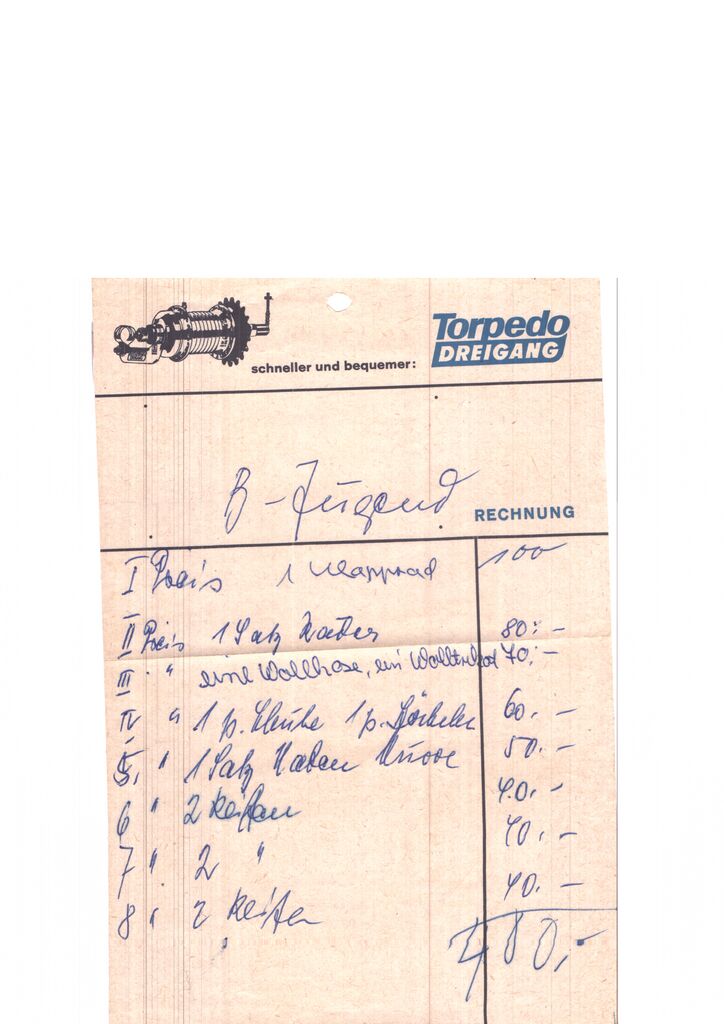 Torpedo
DREIGANG
schneller und bequemer:
B-Jugend
RECHNUNG
I Preis 1 Klapprad 100
II Preis 1 Satz 80.-
III " eine Wollhose, ein Wolltrikot 70.-
IV " 1 p. 1 p. 60.-
5. " 1 Satz Naben 50.-
6 " 2 Reifen 40.-
7 " 2 " 40.-
8 " 2 Reifen 40.-
480,-